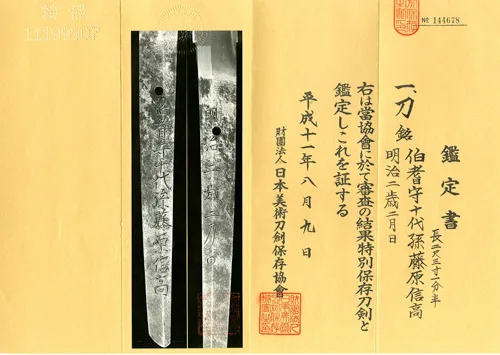 № 144678
鑑定書
一、刀 銘 伯耆守十代孫藤原信高
明治二歳二月日
長二尺三寸一分半
右は當協會に於て審査の結果特別保存刀剣と
鑑定しこれを証する
平成十一年八月九日
財團法人 日本美術刀剣保存協會
十代孫藤原信高
明治二歳二月日